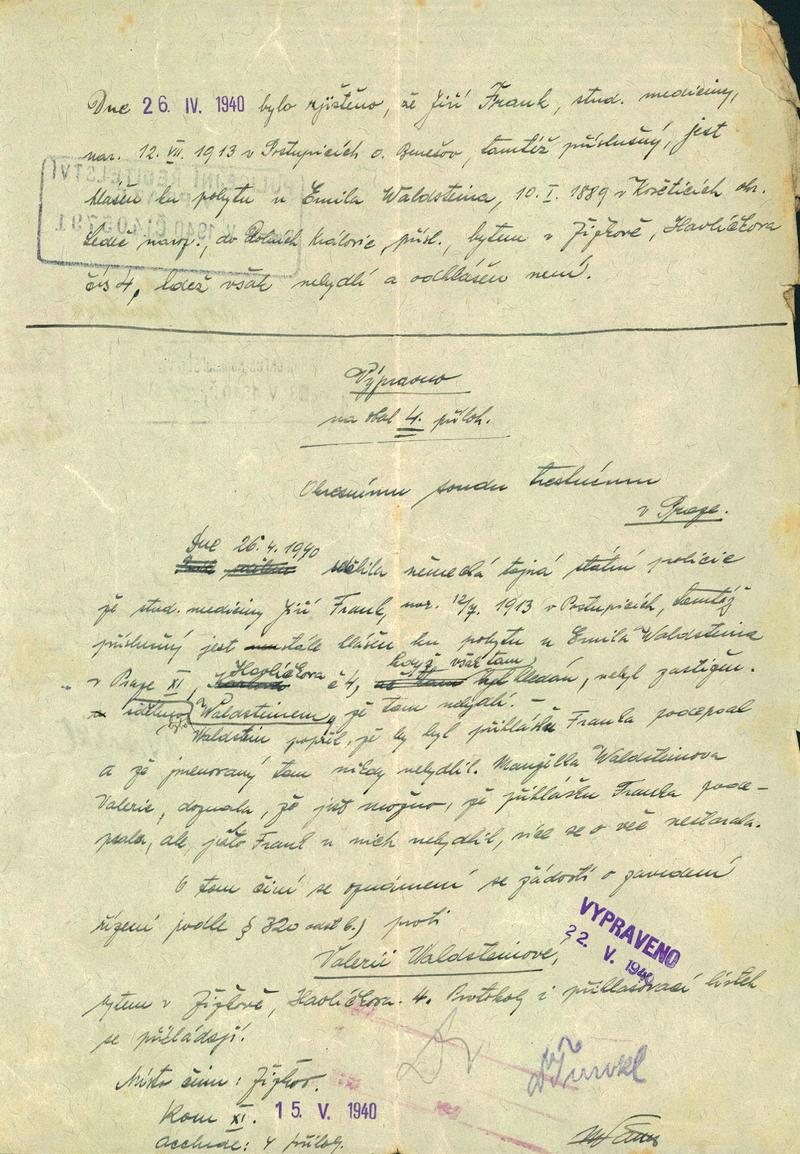 Dne 26. IV. 1940 bylo zjištěno, že Jiří Frank, stud. mediciny,
nar. 12. VII. 1913 v Postupicích o. Benešov, tamtéž příslušný, jest
hlášen ku pobytu u Emila Waldsteina, 10. I. 1889 v Košeticích okr.
Ledeč naroz., do Dolních Královic, přísl., bytem v Žižkově, Havlíčkova
čís 4, kdež však nebydlí a odhlášen není.
Výpravno
na obal 4. příloh.
Okresnímu soudu trestnímu
v Praze.
Dne 26.4.1940 sdělila německá tajná státní policie
že stud. mediciny Jiří Frank, nar. 12/7. 1913 v Postupicích, tamtéž
příslušný jest stále hlášen ku pobytu u Emila Waldsteina
v Praze XI, Havlíčkova č 4, když však tam byl hledán, nebyl zastižen.
sděleno Waldsteinem, že tam nebydlí.
Waldstein popřel, že by byl přihlášku Franka podepsal
a že jmenovaný tam nikdy nebydlil. Manželka Waldsteinova
Valerie, doznala, že jest možno, že přihlášku Franka pode-
psala, ale, ježto Frank u nich nebydlil, více se o věc nestarala.
O tom činí se oznámení se žádostí o zavedení
řízení podle § 320 odst b.) proti
Valerii Waldsteinové,
VYPRAVENO
22. V. 1940
bytem v Žižkově, Havlíčkova. 4. Protokoly i přihlašovací lístek
se předkládají.
Místo činu: Žižkov.
Kom XI. 15. V. 1940
4 příloh.